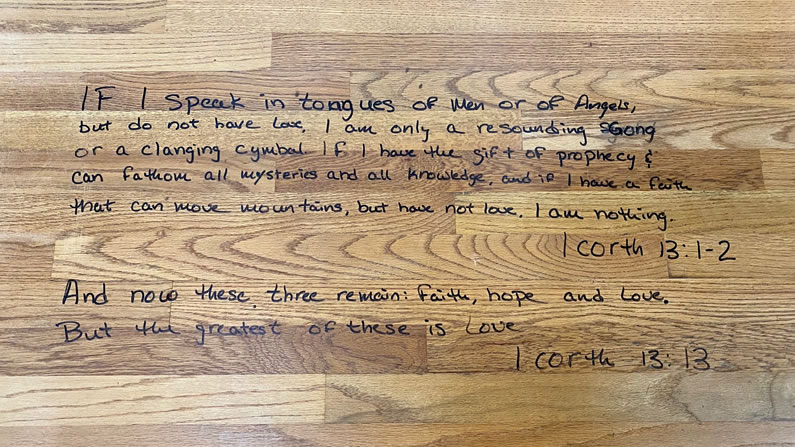 IF I speak in tongues of men or of Angels,
but do not have love, I am only a resounding Gong
or a clanging cymbal If I have the gift of prophecy &
can fathom all mysteries and all knowledge, and if I have a faith
that can move mountains, but have not love, I am nothing.
1 corth 13:1-2
And now these three remain: faith, hope and love.
But the greatest of these is Love
1 corth 13:13